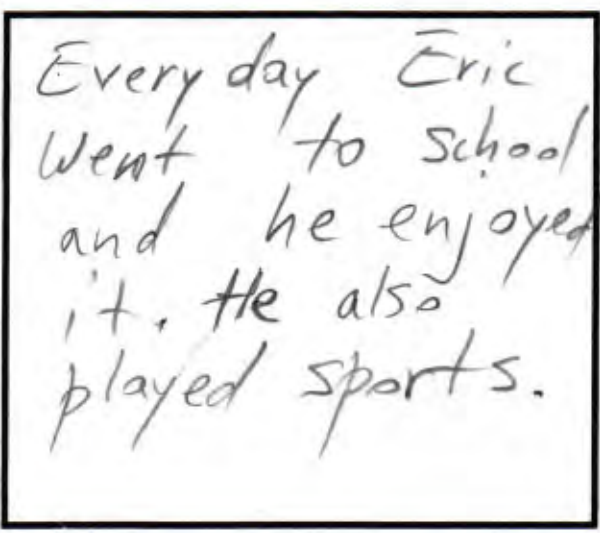 Every day Eric
Went to school
and he enjoyed
it. He also
played sports.